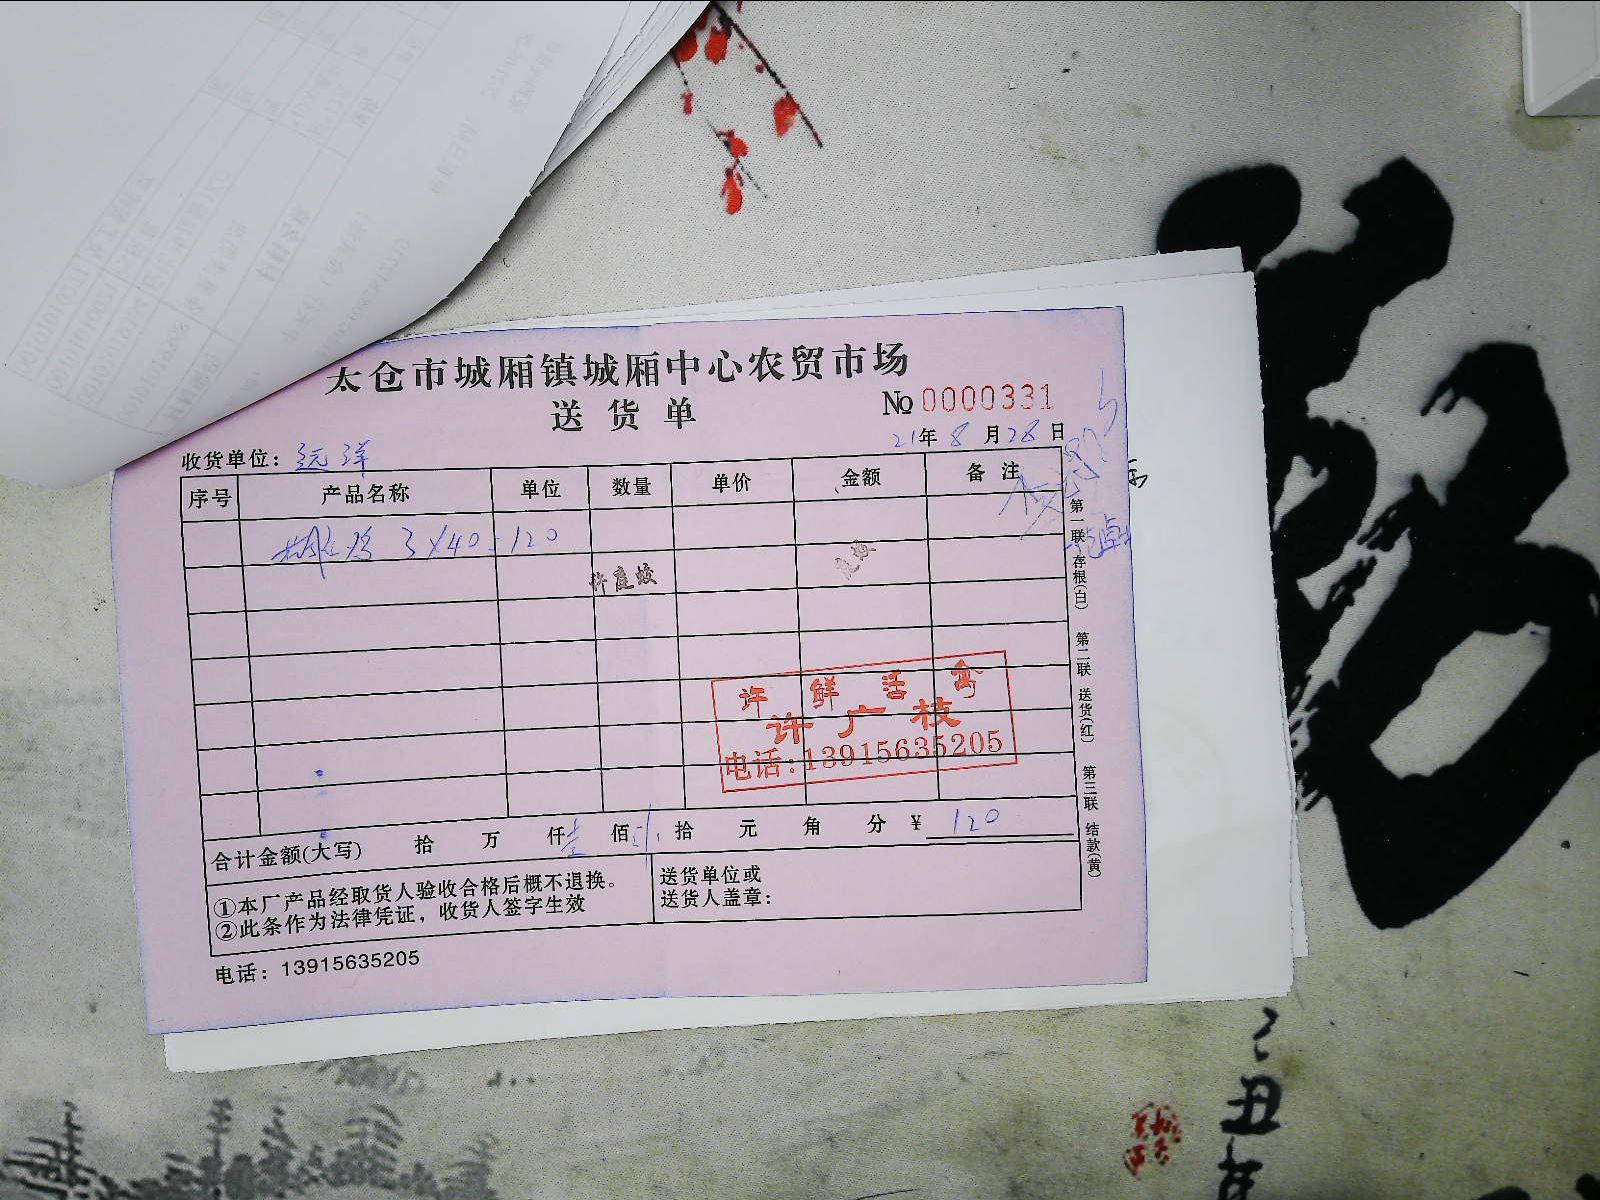 太仓市城厢镇城厢中心农贸市场
送货单
№ 0000331
21年 8月28日
收货单位：远洋
序号 产品名称 单位 数量 单价 金额 备注
3×40=120
许庭蛟
许鲜活禽
许广枝
电话:13915635205
合计金额(大写) 拾 万 仟壹佰 拾 元 角 分 ¥ 120
①本厂产品经取货人验收合格后概不退换。
②此条作为法律凭证，收货人签字生效
送货单位或
送货人盖章：
电话：13915635205
第一联 存根(白) 第二联 送货(红) 第三联 结款(黄)
丑